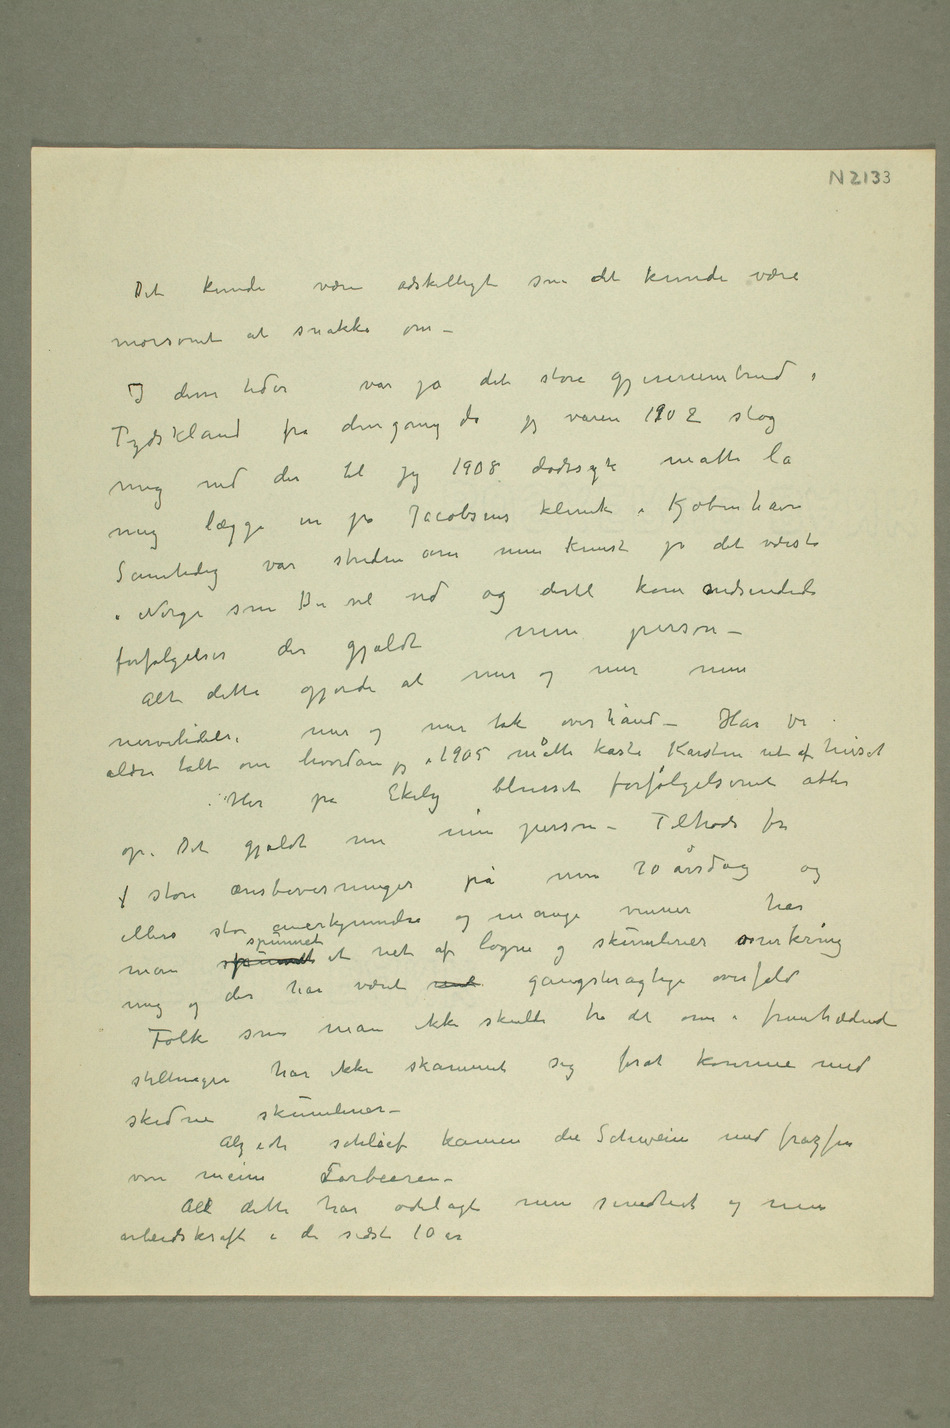 N 2133
Det kunde være adskilligt som det kunde være
morsomt at snakke om –
I denne tider var jo det store gjennembrud i
Tydskland fra den gang da jeg våren 1902 slog
mig ned der til jeg 1908 dødssyk måtte la
mig lægge in på Jacobsens klinik i Kjøbenhavn
Samtidig var striden om min kunst på det værste
i Norge som De vel ved og dertil kom endeindede
forfølgelser der gjaldt min person –
Alt dette gjorde at mer og mer min
nervelidelse mer og mer tok overhånd – Har vi
aldri talt om hvordan jeg i 1905 måtte kaste Karsten ut af huset
Her på Ekely blusset forfølgelserne atter
op. Det gjaldt nu min person – Tiltrods for
store æresbevisninger på min 70 årsdag og
ellers stor anerkjendelse og mange venner har
spunnet
man spunnet et net af løgne og skumlerier omkring
mig og der har været gangsteragtige overfald
Folk som man ikke skulde tro det om i fremtrædende
stillinger har ikke skammet sig forat komme med
skidne skumlerier –
Als ich schlief kamen die Schweine und frazsen
von meine Lorbeeren –
Alt dette har ødelagt min sundhed og min
arbeidskraft i de sidste 10 år